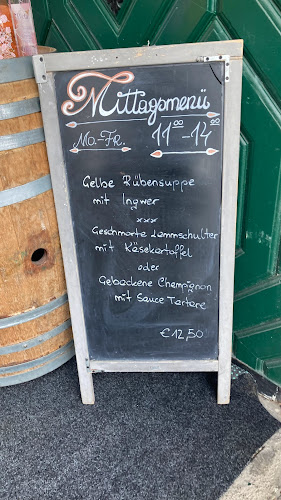 Mittagsmenü
Mo.-Fr. 11⁰⁰-14⁰⁰
Gelbe Rübensuppe
mit Ingwer
xxx
Geschmorte Lammschulter
mit Käsekartoffel
oder
Gebackene Champignon
mit Sauce Tartare
€12,50